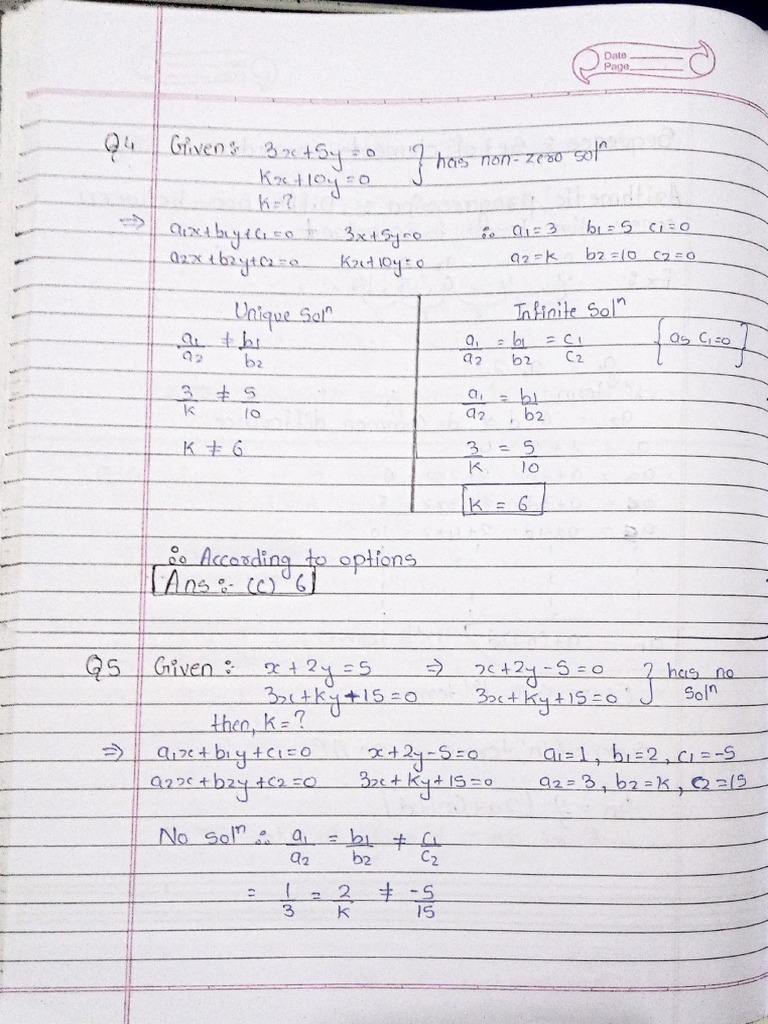 Date
Page
Q4 Given :- 3x+5y=0 } has non-zero solⁿ
Kx+10y=0
K=?
⇒ a1x+b1y+c1=0 3x+5y=0 ∴ a1=3 b1=5 c1=0
a2x+b2y+c2=0 Kx+10y=0 a2=K b2=10 c2=0
Unique Solⁿ
a1/a2 ≠ b1/b2
3/K ≠ 5/10
K ≠ 6
Infinite Solⁿ
a1/a2 = b1/b2 = c1/c2 {as c1=0}
a1/a2 = b1/b2
3/K = 5/10
K = 6
∴ According to options
Ans :- (C) 6
Q5 Given : x+2y=5 ⇒ x+2y-5=0 } has no solⁿ
3x+Ky+15=0 3x+Ky+15=0
then, K=?
⇒ a1x+b1y+c1=0 x+2y-5=0 a1=1, b1=2, c1=-5
a2x+b2y+c2=0 3x+Ky+15=0 a2=3, b2=K, c2=15
No solⁿ ∴ a1/a2 = b1/b2 ≠ c1/c2
= 1/3 = 2/K ≠ -5/15